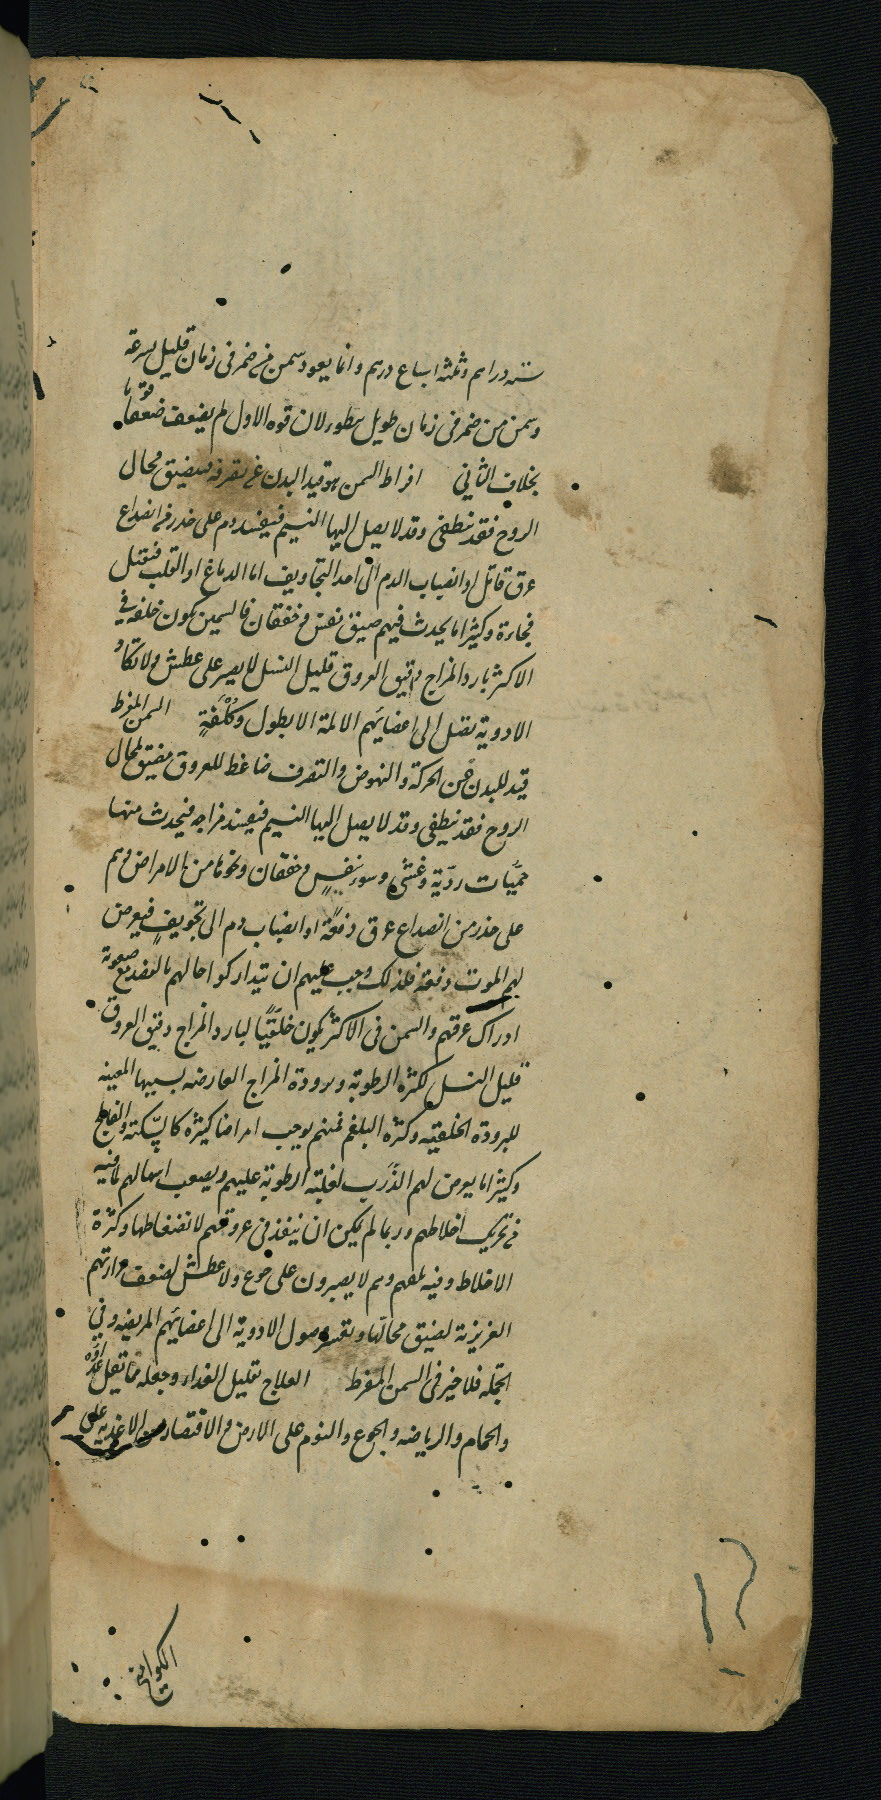 ستة دراهم وثلثة اسباع درهم وانما يعود سمن من ضمر فى زمان قليل بسرعة
وسمن من ضمر فى زمان طويل ببطوء لان قوة الاول لم يضعف ضعفا قويا
بخلاف الثاني افراط السمن هو قيد البدن عن تصرفه فيضيق مجال
الروح فقد ينطفى وقد لا يصل اليها النسيم فيفسد وهم على خدر من انصداع
عرق قاتل او انصباب الدم الى احد التجاويف اما الدماغ او القلب فيقتل
فجاءة وكثيرا ما يحدث فيهم ضيق نفس و خفقان فالسمين يكون خلقه في
الاكثر بارد المزاج دقيق العروق قليل النسل لا يصبر على عطش ولا تكاد
الادوية تصل الى اعضائهم الالمة الا بطول وكُلفةٍ السمن المفرط
قيد للبدن عن الحركة والنهوض والتصرف ضاغط للعروق مضيق لمجال
الروح فقد ينطفى وقد لا يصل اليها النسيم فيفسد مزاجه فيحدث منها
حميّات رديّة وغشى وسوء نفسٍ وخفقان ونحوها من الامراض وهم
على حذر من انصداع عرق دفعةً او انصباب دم الى تجويفٍ فيعرض
لهم الموت دفعة فلذلك وجب عليهم ان يتداركوا حالهم بالفصد مع صعوبة
ادراك عرقهم والسمن فى الاكثر يكون خلقيّا لبارد المزاج دقيق العروق
قليل النسل لكثرة الرطوبة وبرودة المزاج العارضه بسببها المعينه
للبرودة الخلقيه وكثرة البلغم فمنهم يوجب امراضا كثيرة كالسّكتة والفالج
وكثيرا ما يعرض لهم الذَرَب لغلبة الرطوبة عليهم ويصعب اسهالهم لما فيه
من تحريك اخلاطهم وربما لم يكن ان ينفذ فى عروقهم لانضغاطها وكثرة
الاخلاط وفيه تلفهم وهم لا يصبرون على جوع ولا عطش لضعف حرارتهم
الغريزية لضيق مجالها ويعسر وصول الادوية الى اعضائهم المريضه وفي
الجملة فلا خير فى السمن المفرط العلاج تقليل الغداء وجعله مما يقل غذاؤه
والحمام والرياضه والجوع والنوم على الارض والاقتصار من الاغذيه على
الكوامخ
١٢